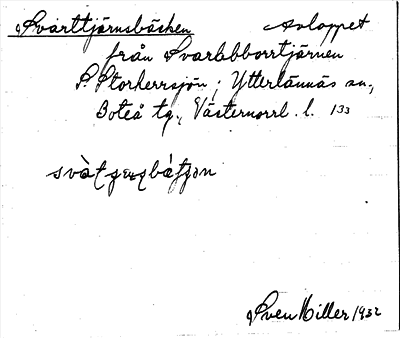 Svarttjärnsbäcken Avloppet
från Svartabborrtjärnen
t. Storherrsjön; Ytterlännäs sn.,
Boteå tg., Västernorrl. l. 133
Sven Miller 1932